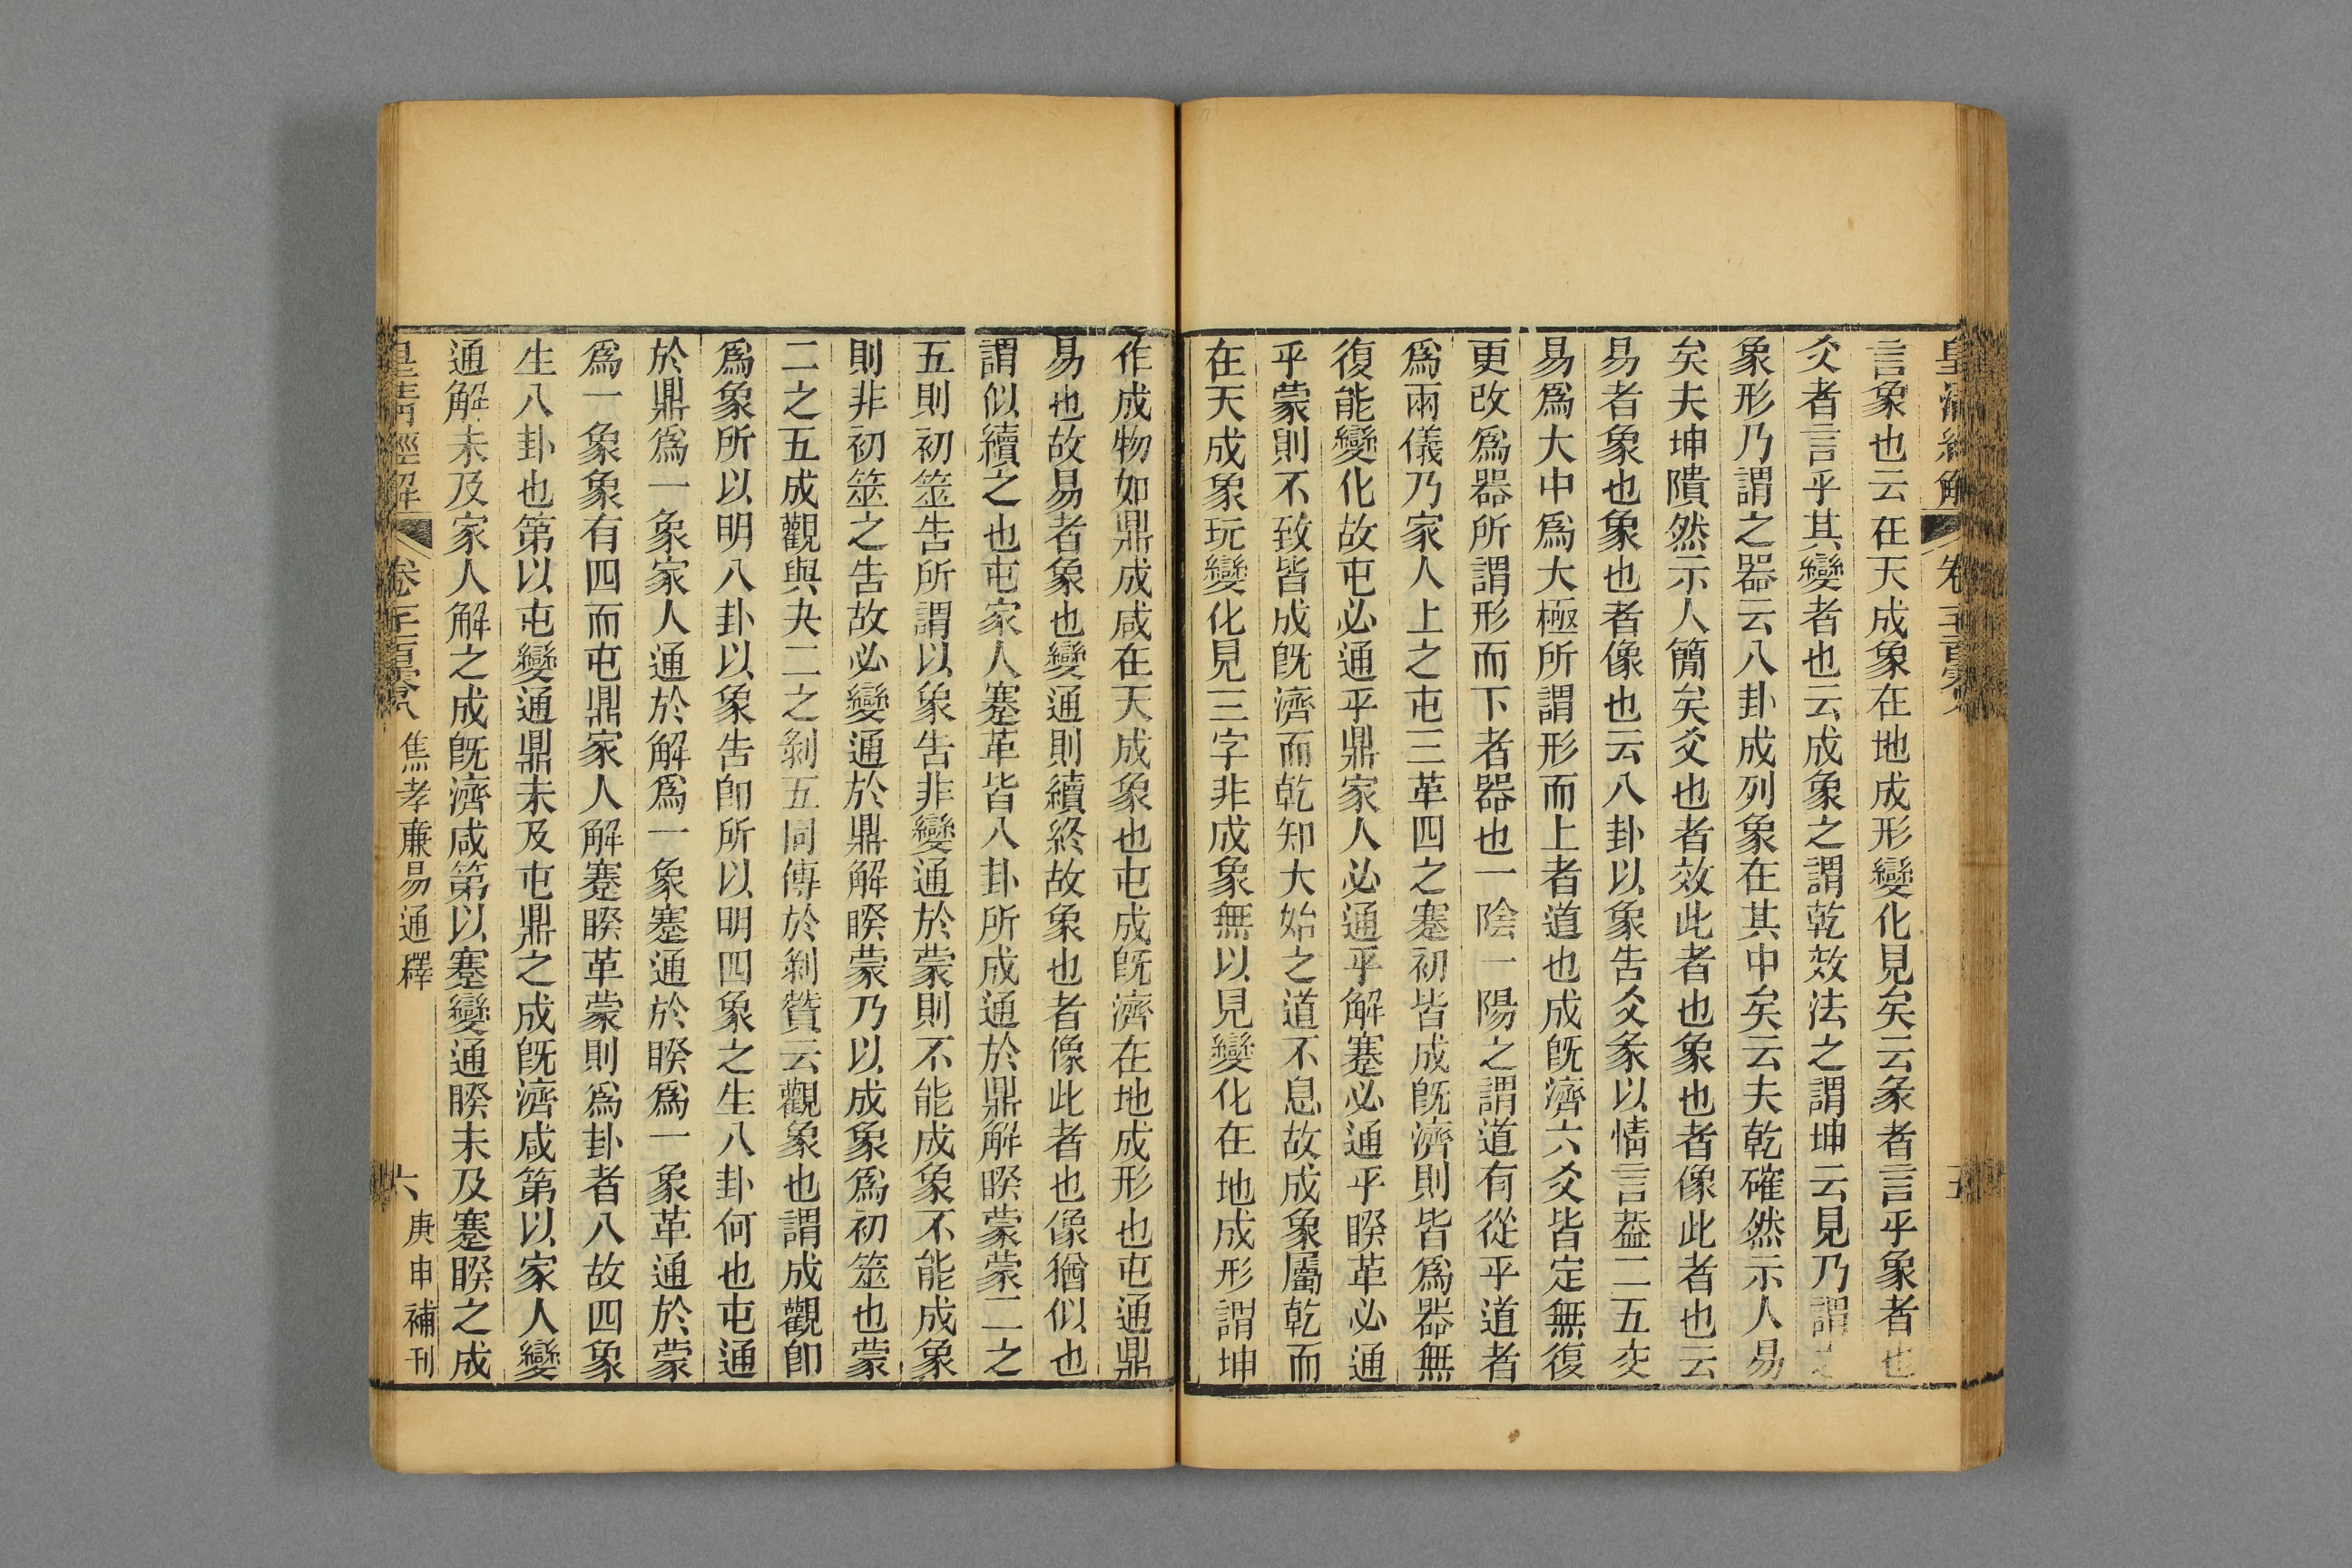 皇清經解
卷一千一百零八
五
言象也云在天成象在地成形變化見矣云彖者言乎象者也
爻者言乎其變者也云成象之謂乾效法之謂坤云見乃謂之
象形乃謂之器云八卦成列象在其中矣云夫乾確然示人易
矣夫坤隤然示人簡矣爻也者效此者也象也者像此者也云
易者象也象也者像也云八卦以象告爻彖以情言葢二五交
易爲大中爲大極所謂形而上者道也成旣濟六爻皆定無復
更改爲器所謂形而下者器也一陰一陽之謂道有從乎道者
爲兩儀乃家人上之屯三革四之蹇初皆成旣濟則皆爲器無
復能變化故屯必通乎鼎家人必通乎解蹇必通乎睽革必通
乎蒙則不致皆成旣濟而乾知大始之道不息故成象屬乾而
在天成象玩變化見三字非成象無以見變化在地成形謂坤
作成物如鼎成咸在天成象也屯成旣濟在地成形也屯通鼎
易也故易者象也變通則續終故象也者像此者也像猶似也
謂似續之也屯家人蹇革皆八卦所成通於鼎解睽蒙蒙二之
五則初筮告所謂以象告非變通於蒙則不能成象不能成象
則非初筮之告故必變通於鼎解睽蒙乃以成象爲初筮也蒙
二之五成觀與夬二之剝五同傳於剝贊云觀象也謂成觀卽
爲象所以明八卦以象告卽所以明四象之生八卦何也屯通
於鼎爲一象家人通於解爲一象蹇通於睽爲一象革通於蒙
爲一象象有四而屯鼎家人解蹇睽革蒙則爲卦者八故四象
生八卦也第以屯變通鼎未及屯鼎之成旣濟咸第以家人變
通解未及家人解之成旣濟咸第以蹇變通睽未及蹇睽之成
皇清經解
卷一千一百零八
焦孝廉易通釋
六
庚申補刊